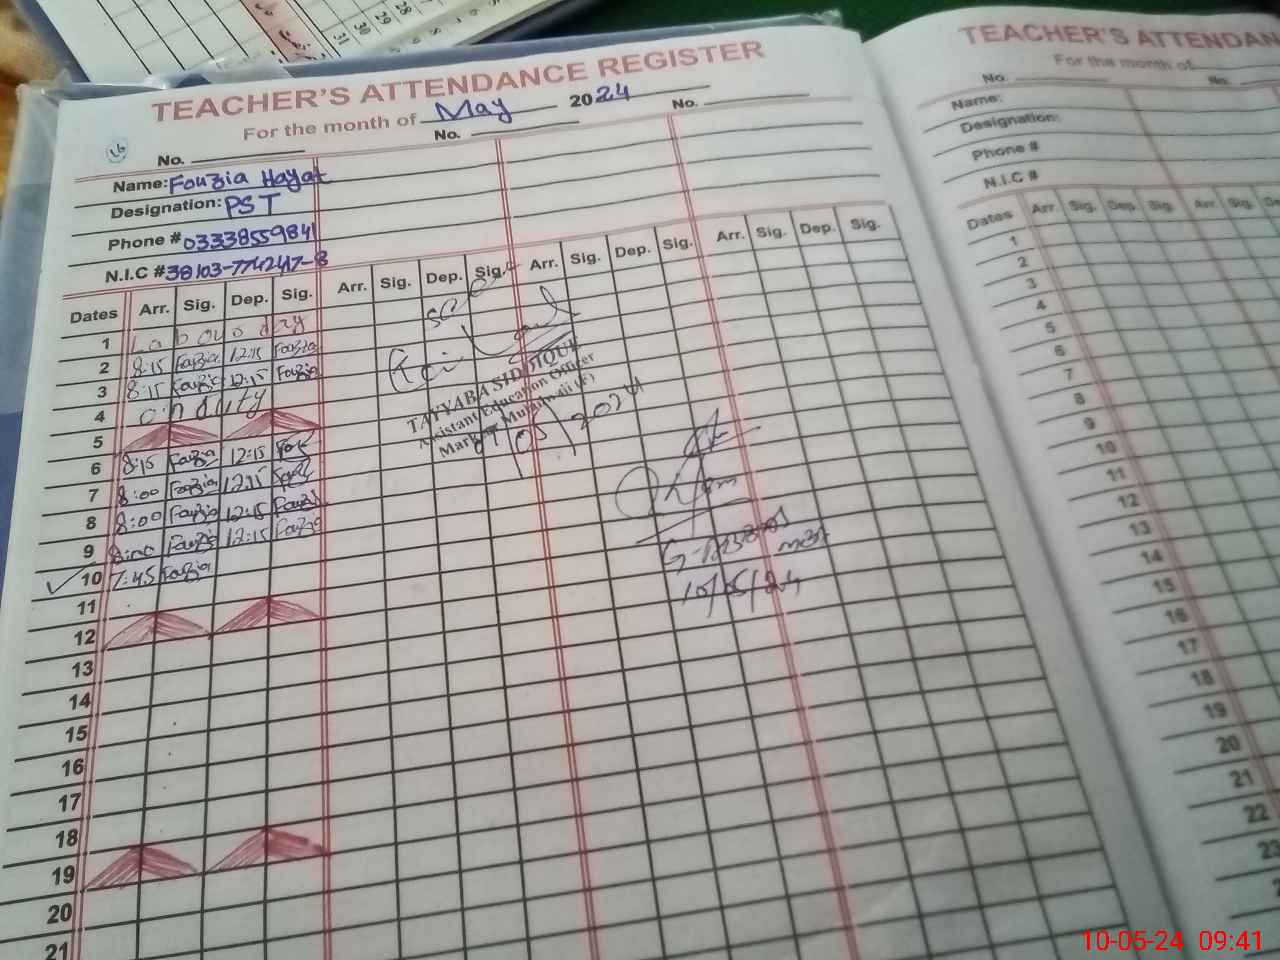 31 30 29 28
TEACHER'S ATTENDANCE REGISTER
For the month of May 2024
16
No. No. No.
Name: Fouzia Hayat
Designation: PST
Phone # 03338559841
N.I.C # 38103-7742417-8
Dates Arr. Sig. Dep. Sig. Arr. Sig. Dep. Sig. Arr. Sig. Dep. Sig. Arr. Sig. Dep. Sig.
1 Labour day
2 8:15 Fouzia 12:15 Fouzia
3 8:15 Fouzia 12:15 Fouzia
4 on duty
5
6 8:15 Fouzia 12:15
7 8:00 Fouzia 12:15
8 8:00 Fouzia 12:15 Fouzia
9 8:00 Fouzia 12:15 Fouzia
10 7:45 Fouzia
11
12
13
14
15
16
17
18
19
20
21
TAYYABA SIDDIQUI
Assistant Education Officer
10/05/24
TEACHER'S ATTENDAN
For the month of
No. No.
Name:
Designation:
Phone #
N.I.C #
Dates Arr. Sig. Dep. Sig. Arr. Sig. De
1
2
3
4
5
6
7
8
9
10
11
12
13
14
15
16
17
18
19
20
21
22
23
10-05-24 09:41